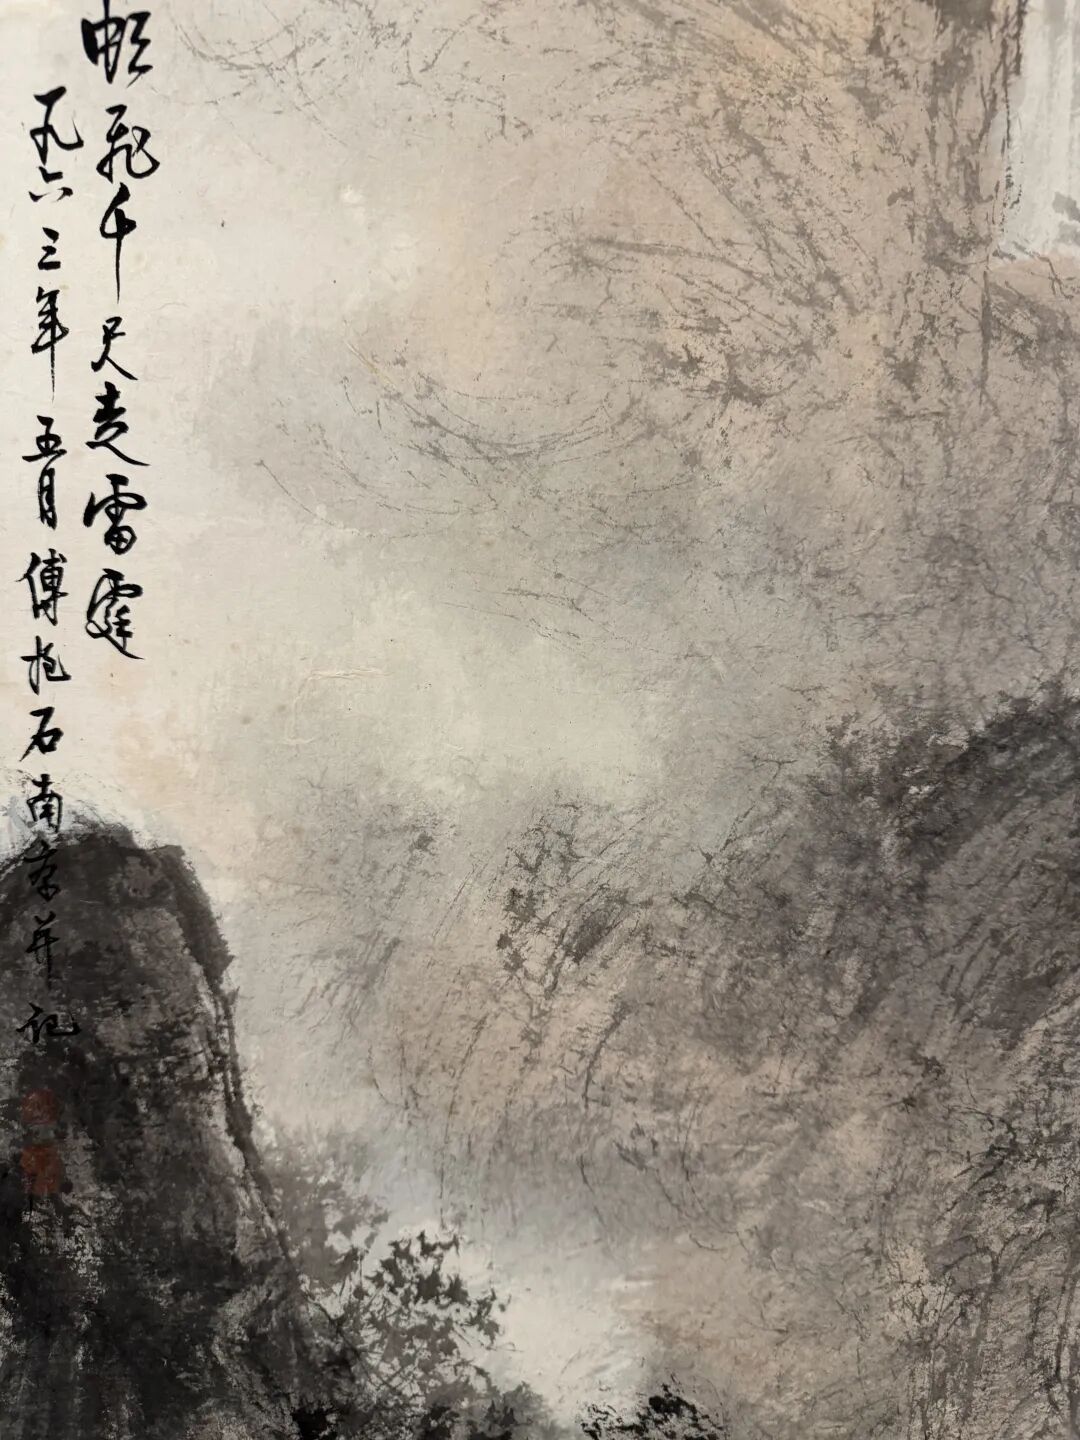 飛千尺走雷霆
一九六三年五月傅抱石南京并記